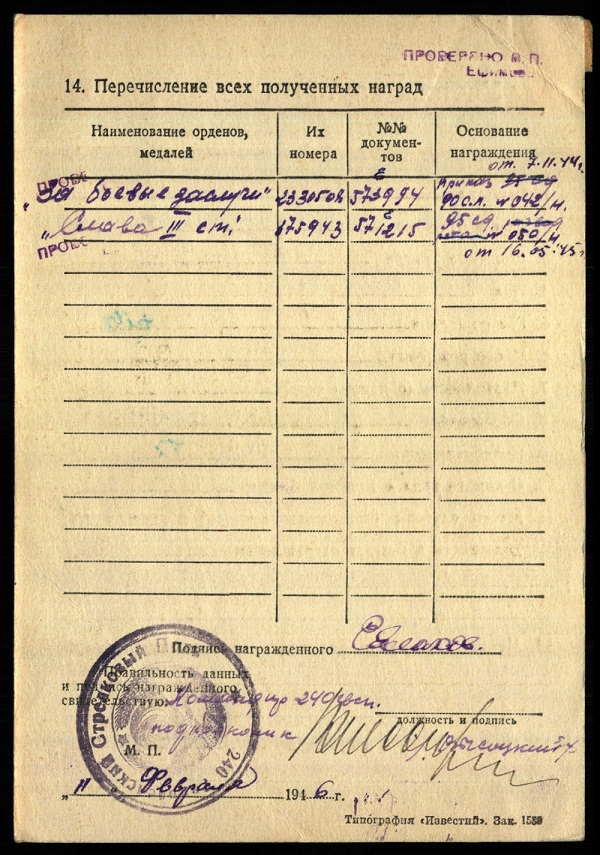 ПРОВЕРЕНО В. П.
14. Перечисление всех полученных наград
Наименование орденов, медалей
Их номера
№№ документов
Основание награждения
от 7.11.44г.
ПРОВЕ
„За боевые заслуги"
2330502
Е 573994
приказ
90 с.п. № 042/н.
„Слава III ст."
175943
Е 571215
95 сд
№ 050/н
ПРОВЕ
от 16.05.45г.
Подпись награжденного
Правильность данных
и подпись награжденного
свидетельствую: Командир 240
должность и подпись
подполковник
М. П.
Стрелковый
240
„11" Февраля 1946 г.
Типография «Известий». Зак. 1589